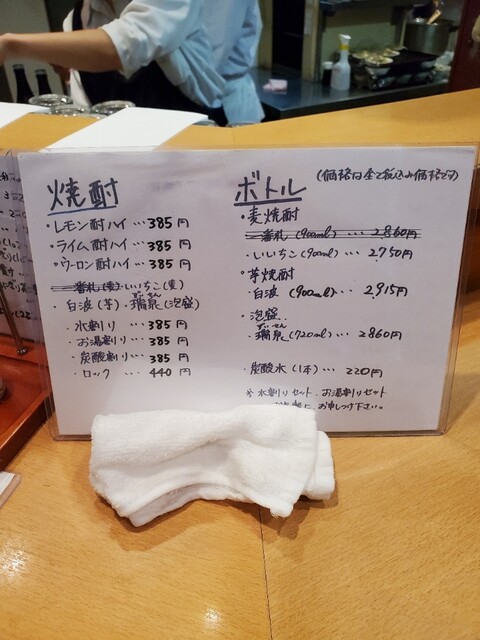 焼酎
・レモン酎ハイ…385円
・ライム酎ハイ…385円
・ウーロン酎ハイ…385円
一番札(麦)・いいちこ(麦)
・白波(芋)・瑞泉(泡盛)
ずいせん
水割り…385円
お湯割り…385円
炭酸割り…385円
ロック…440円
ボトル
(価格は全て税込み価格です)
・麦焼酎
一番札(900ml)…2860円
・いいちこ(900ml)…2,750円
・芋焼酎
・白波(900ml)…2,915円
・泡盛
ずいせん
・瑞泉(720ml)…2860円
・炭酸水(1本)…220円
※水割りセット、お湯割りセット
お申しつけ下さい。